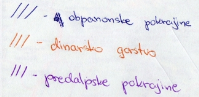 /// - obpanonske pokrajine
/// - dinarsko gorstvo
/// - predalpske pokrajine